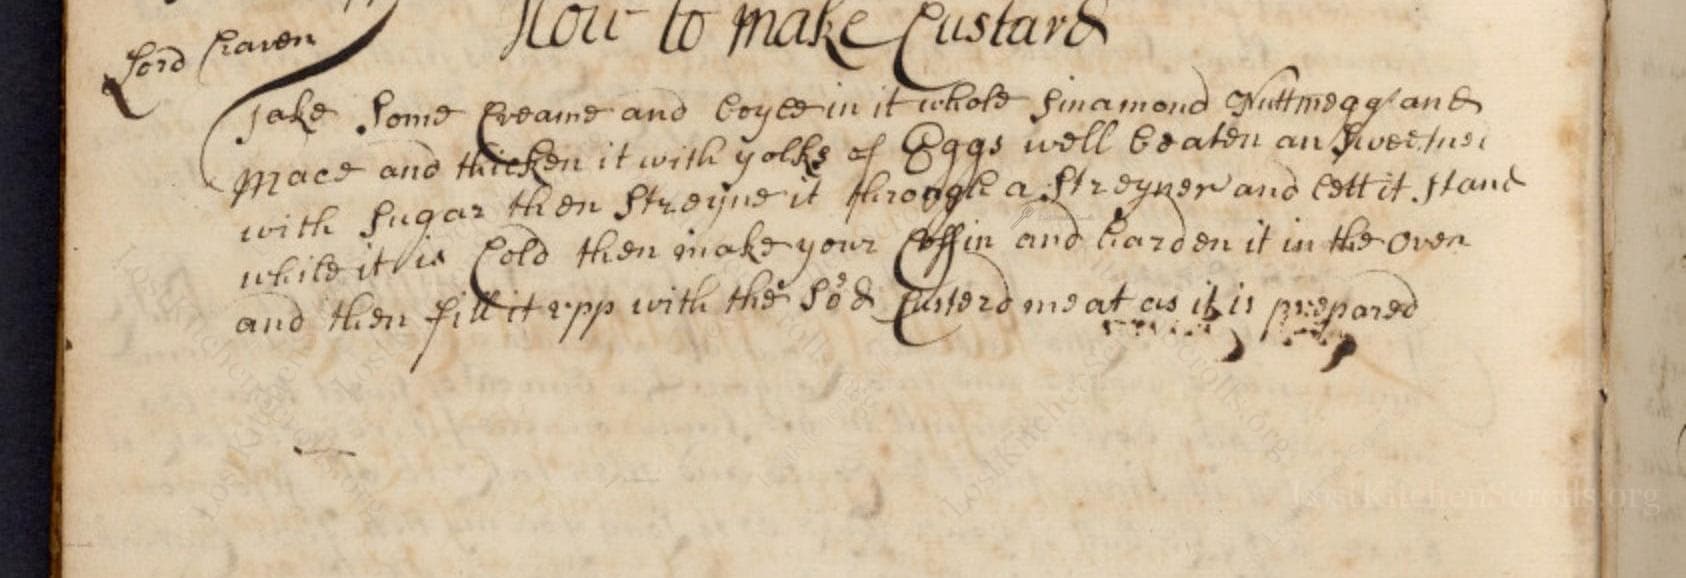 How to make Custard
Lord Craven
Take Some Creame and boyle in it whole Sinamond Nuttmegg and
Mace and thicken it with yolks of Eggs well beaten an Sweetned
with Sugar then Streyne it through a Streyner and lett it stand
while it is Cold then make your Coffin and harden it in the oven
and then fill it vpp with the Custerd meat as it is prepared
LostKitchenScrolls.org